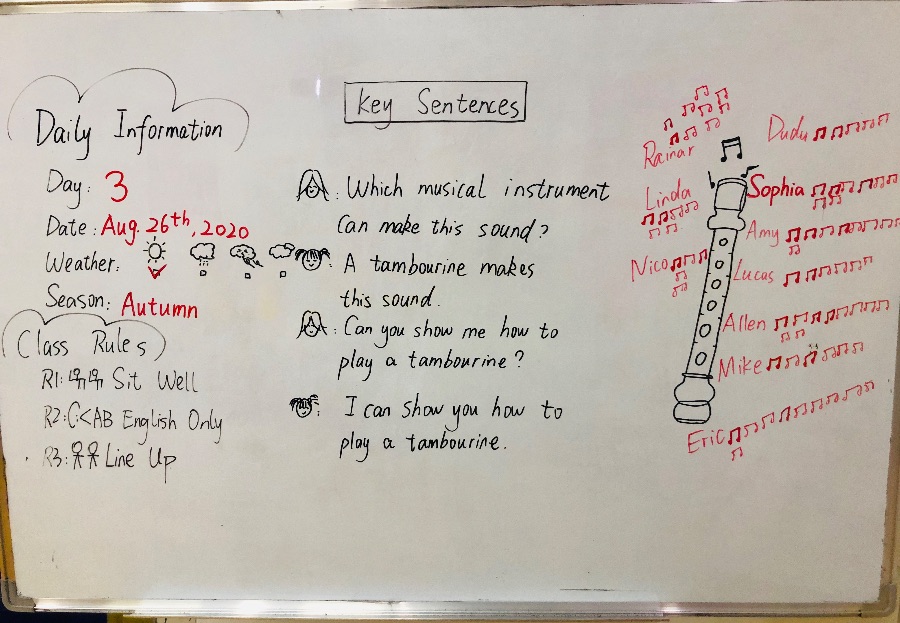 Daily Information
Day: 3
Date: Aug. 26th, 2020
Weather:
Season: Autumn
Class Rules
R1: Sit Well
R2: AB English Only
R3: Line Up
Key Sentences
: Which musical instrument
can make this sound?
: A tambourine makes
this sound.
: Can you show me how to
play a tambourine?
: I can show you how to
play a tambourine.
Rainar
Linda
Nico
Dudu
Sophia
Amy
Lucas
Allen
Mike
Eric